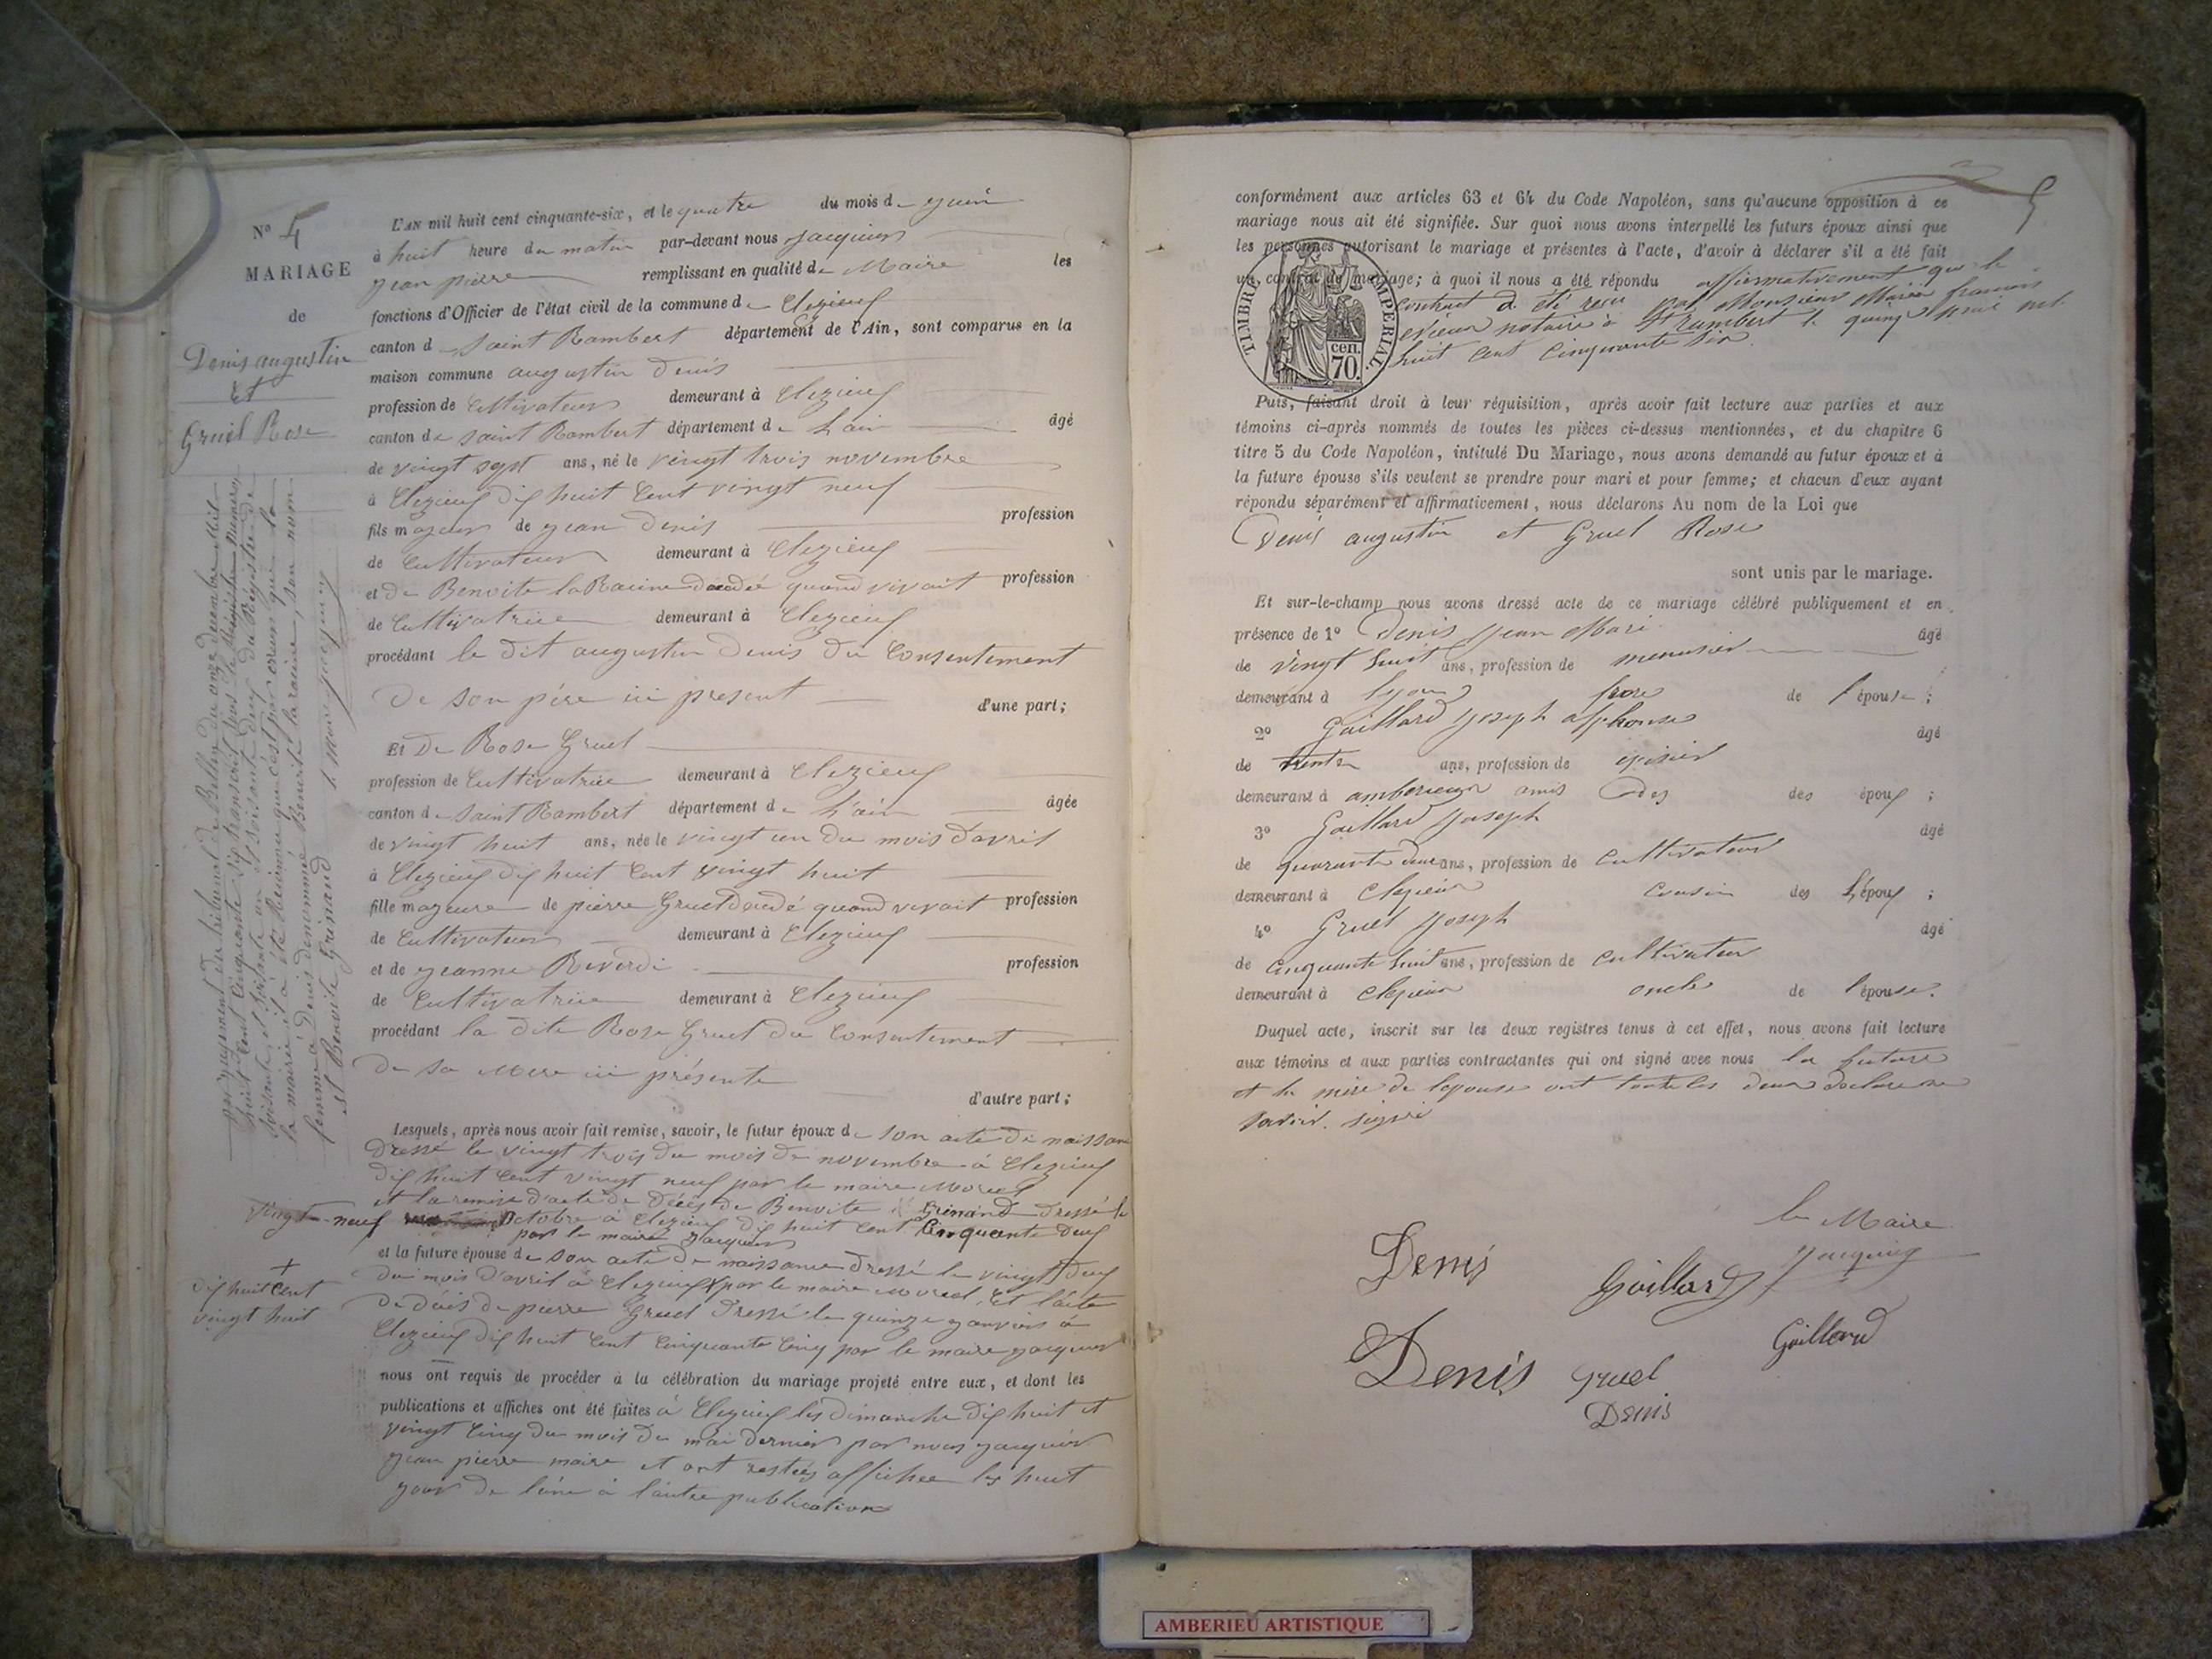 N° 4
MARIAGE
de
Denis augustin
et
Gruel Rose
L'AN mil huit cent cinquante-six, et le quatre du mois de juin
à huit heure du matin par-devant nous jacquier
jean pierre remplissant en qualité de Maire les
fonctions d'Officier de l'état civil de la commune de Clezieuf
canton de saint Rambert département de l'Ain, sont comparus en la
maison commune augustin denis
profession de Cultivateur demeurant à Clezieuf
canton de saint Rambert département de l'ain âgé
de vingt sept ans, né le vingt trois novembre
à Clezieuf dix huit Cent vingt neuf
fils majeur de jean denis profession
de Cultivateur demeurant à Clezieuf
et de Benoite la Racine décédée quand vivait profession
de Cultivatrice demeurant à Clezieuf
procédant le dit augustin denis du Consentement
de son père ici present d'une part;
Et de Rose Gruel
profession de Cultivatrice demeurant à Clezieuf
canton de saint Rambert département de l'ain âgée
de vingt huit ans, née le vingt un du mois d'avril
à Clezieuf dix huit Cent vingt huit
fille majeure de pierre Gruel décédé quand vivait profession
de Cultivateur demeurant à Clezieuf
et de jeanne Reverdi profession
de Cultivatrice demeurant à Clezieuf
procédant la dite Rose Gruel du Consentement
de sa mere ici présente
d'autre part;
Lesquels, après nous avoir fait remise, savoir, le futur époux de son acte de naissance
dressé le vingt trois du mois de novembre à Clezieuf
dix huit Cent vingt neuf par le maire Morel
et la remise d'acte de décès de Benoite Grinand dressé le
vingt-neuf octobre à Clezieuf dix huit Cent Cinquante deux
par le maire jacquier
et la future épouse de son acte de naissance dressé le vingt deux
du mois d'avril à Clezieuf par le maire morel, et l'acte
dix huit Cent
vingt huit
de décès de pierre Gruel dressé le quinze janvier à
Clezieuf dix huit Cent Cinquante Cinq par le maire jacquier
nous ont requis de procéder à la célébration du mariage projeté entre eux, et dont les
publications et affiches ont été faites à Clezieuf les dimanche dix huit et
vingt Cinq du mois de mai dernier par nous jacquier
jean pierre maire et ont restées affichée les huit
jour de l'une à l'autre publication
par jugement du tribunal de Belley du onze décembre Mil
huit Cent Cinquante six transcrit sous le
la mairie il a été Reconnu que c'est par erreur que la
femme à Denis denommée Benoite la racine, son nom
est Benoite Grinand le Maire jacquier
conformément aux articles 63 et 64 du Code Napoléon, sans qu'aucune opposition à ce
mariage nous ait été signifiée. Sur quoi nous avons interpellé les futurs époux ainsi que
les personnes autorisant le mariage et présentes à l'acte, d'avoir à déclarer s'il a été fait
un contrat de mariage; à quoi il nous a été répondu affirmativement que le
contract a été recu par Monsieur francois
notaire à St rambert le quinze mil
huit cent cinquante six.
TIMBRE IMPERIAL.
cen.
70.
Puis, faisant droit à leur réquisition, après avoir fait lecture aux parties et aux
témoins ci-après nommés de toutes les pièces ci-dessus mentionnées, et du chapitre 6
titre 5 du Code Napoléon, intitulé Du Mariage, nous avons demandé au futur époux et à
la future épouse s'ils veulent se prendre pour mari et pour femme; et chacun d'eux ayant
répondu séparément et affirmativement, nous déclarons Au nom de la Loi que
Denis augustin et Gruel Rose
sont unis par le mariage.
Et sur-le-champ nous avons dressé acte de ce mariage célébré publiquement et en
présence de 1° Denis jean Mari âgé
de vingt huit ans, profession de menusier
demeurant à lyon frere de l'épouse;
2° Gaillard joseph alphonse âgé
de trente ans, profession de episier
demeurant à amberieux amis des des époux;
3° Gaillard joseph âgé
de quarante deux ans, profession de cultivateur
demeurant à Clezieu cousin des l'époux;
4° Gruel joseph âgé
de cinquante huit ans, profession de cultivateur
demeurant à Clezieu oncle de l'épouse.
Duquel acte, inscrit sur les deux registres tenus à cet effet, nous avons fait lecture
aux témoins et aux parties contractantes qui ont signé avec nous la future
et la mère de lepouse ont toute les deux declare ne
savoir signé
le Maire
jacquier
Denis
Gaillard
Denis
Gruel
Gaillard
Denis
AMBERIEU ARTISTIQUE